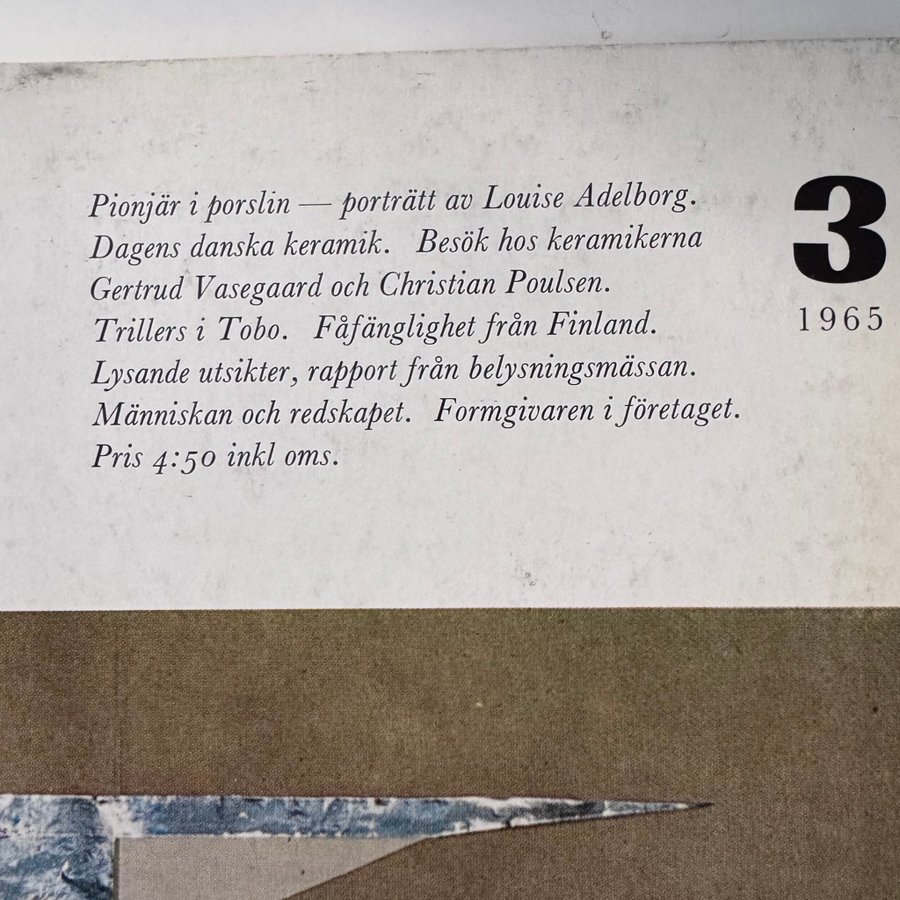 Pionjär i porslin — porträtt av Louise Adelborg.
Dagens danska keramik. Besök hos keramikerna
Gertrud Vasegaard och Christian Poulsen.
Trillers i Tobo. Fåfänglighet från Finland.
Lysande utsikter, rapport från belysningsmässan.
Människan och redskapet. Formgivaren i företaget.
Pris 4:50 inkl oms.
3
1965